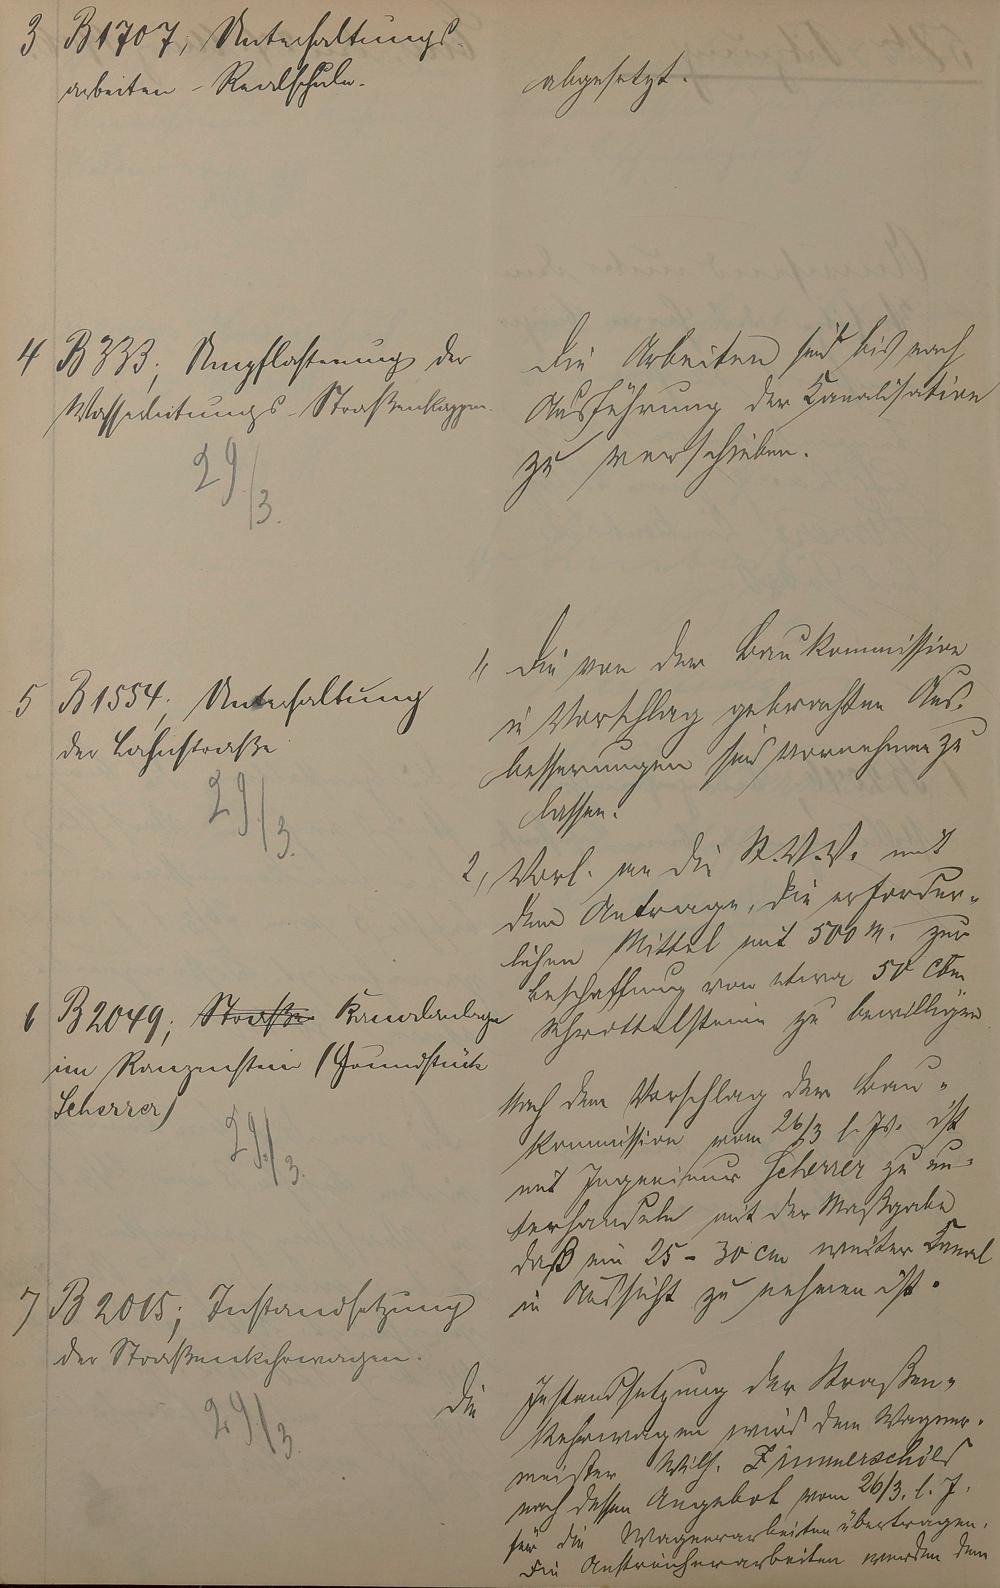 3 B 1707, Unterhaltungs-
arbeiten - Realschule.
abgesetzt.
4 B 333; Umpflasterung der
Wasserleitungs-Straßenkappen.
29/3.
Die Arbeiten sind bis nach
Ausführung der Kanalisation
zu verschieben.
5 B 1554; Unterhaltung
der Lahnstraße
29/3.
1, Die von der Baukommission
in Vorschlag gebrachten Aus-
besserungen sind vornehmen zu
lassen.
2, Vorl. an die St.V.V. mit
dem Antrage, die erforder-
lichen Mittel mit 500 M. zur
Beschaffung von etwa 50 cbm
Schrottelsteine zu bewilligen
6 B 2049; Straße Kanalanlage
im Ranzenstein (Grundstück
Scherrer)
29/3.
Nach dem Vorschlag der Bau-
kommission vom 26/3 l. Js. ist
mit Ingenieur Scherrer zu un-
terhandeln mit der Maßgabe
daß ein 25 - 30 cm weiter Kanal
in Aussicht zu nehmen ist.
7 B 2015; Instandsetzung
der Straßenkehrwagen.
29/3.
Die Instandsetzung der Straßen-
kehrwagen wird dem Wagner-
meister Wilh. Zimmerschied
nach dessen Angebot vom 26/3. l. J.
für die Wagnerarbeiten übertragen.
Die Anstreicherarbeiten werden dem